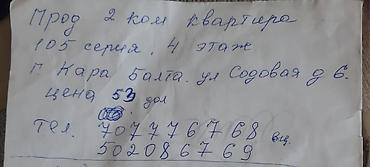 Прод 2 ком квартира
105 серия. 4 этаж
г Кара Балта. ул Содовая д 6.
цена 53 дол
Тел. 707776768
502086769 вц.